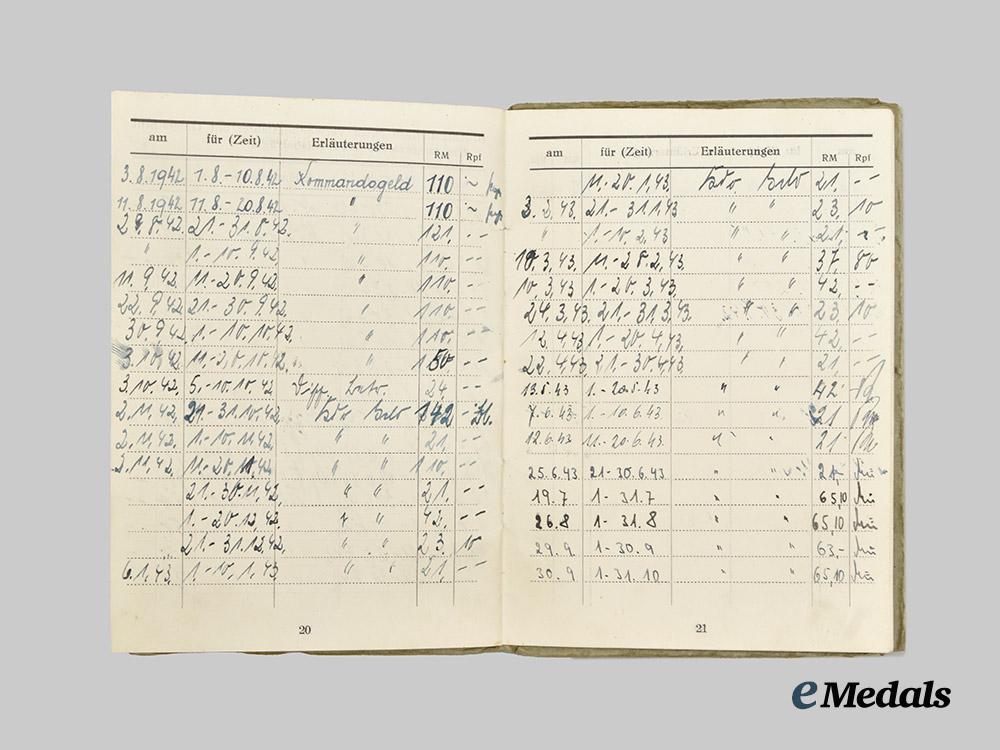 am für (Zeit) Erläuterungen RM Rpf
3.8.1942 1.8.-10.8.42 Kommandogeld 110
11.8.1942 11.8.-20.8.42 " 110
29.8.42. 21.-31.8.42. " 121. --
" 1.-10.9.42 " 110. --
11.9.42 11.-20.9.42 " 110. --
22.9.42 21.-30.9.42 " 110. --
30.9.42 1.-10.10.42. " 110. --
3.10.42. 11.-20.10.42. " 150 --
3.10.42. 5.-10.10.42 Diff. 24. --
2.11.42. 21.-31.10.42. Kdo 142 --
2.11.42. 1.-10.11.42 " " 21. --
2.11.42. 11.-20.11.42 " " 110. --
21.-30.11.42. " " 21. --
1.-20.12.42. " " 42. --
21.-31.12.42. " " 23. 10
6.1.43. 1.-10.1.43. " " 21. --
20
am für (Zeit) Erläuterungen RM Rpf
11.-20.1.43. Kdo 21. --
3.2.43. 21.-31.1.43 " " 23. 10
" 1.-10.2.43 " " 21.
10.3.43. 11.-28.2.43. " " 37. 80
10.3.43 1.-20.3.43. " " 42. --
24.3.43. 21.-31.3.43. " " 23. 10
12.4.43 1.-20.4.43. " " 42. --
22.4.43 21.-30.4.43. " " 21. --
13.5.43 1.-20.5.43 " " 42
7.6.43 1.-10.6.43 " " 21
12.6.43 11.-20.6.43 " " 21
25.6.43 21-30.6.43 " " 21.-
19.7 1-31.7 " " 65,10
26.8 1-31.8 " " 65,10
29.9 1-30.9 " " 63,-
30.9 1-31.10 " " 65,10
21
eMedals